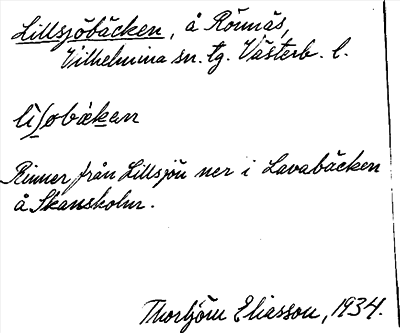 Lillsjöbäcken, å Rönnäs,
Vilhelmina sn. tg. Västerb. l.
Rinner från Lillsjön ner i Lavabäcken
å Skansholm.
Thorbjörn Eliasson, 1934.